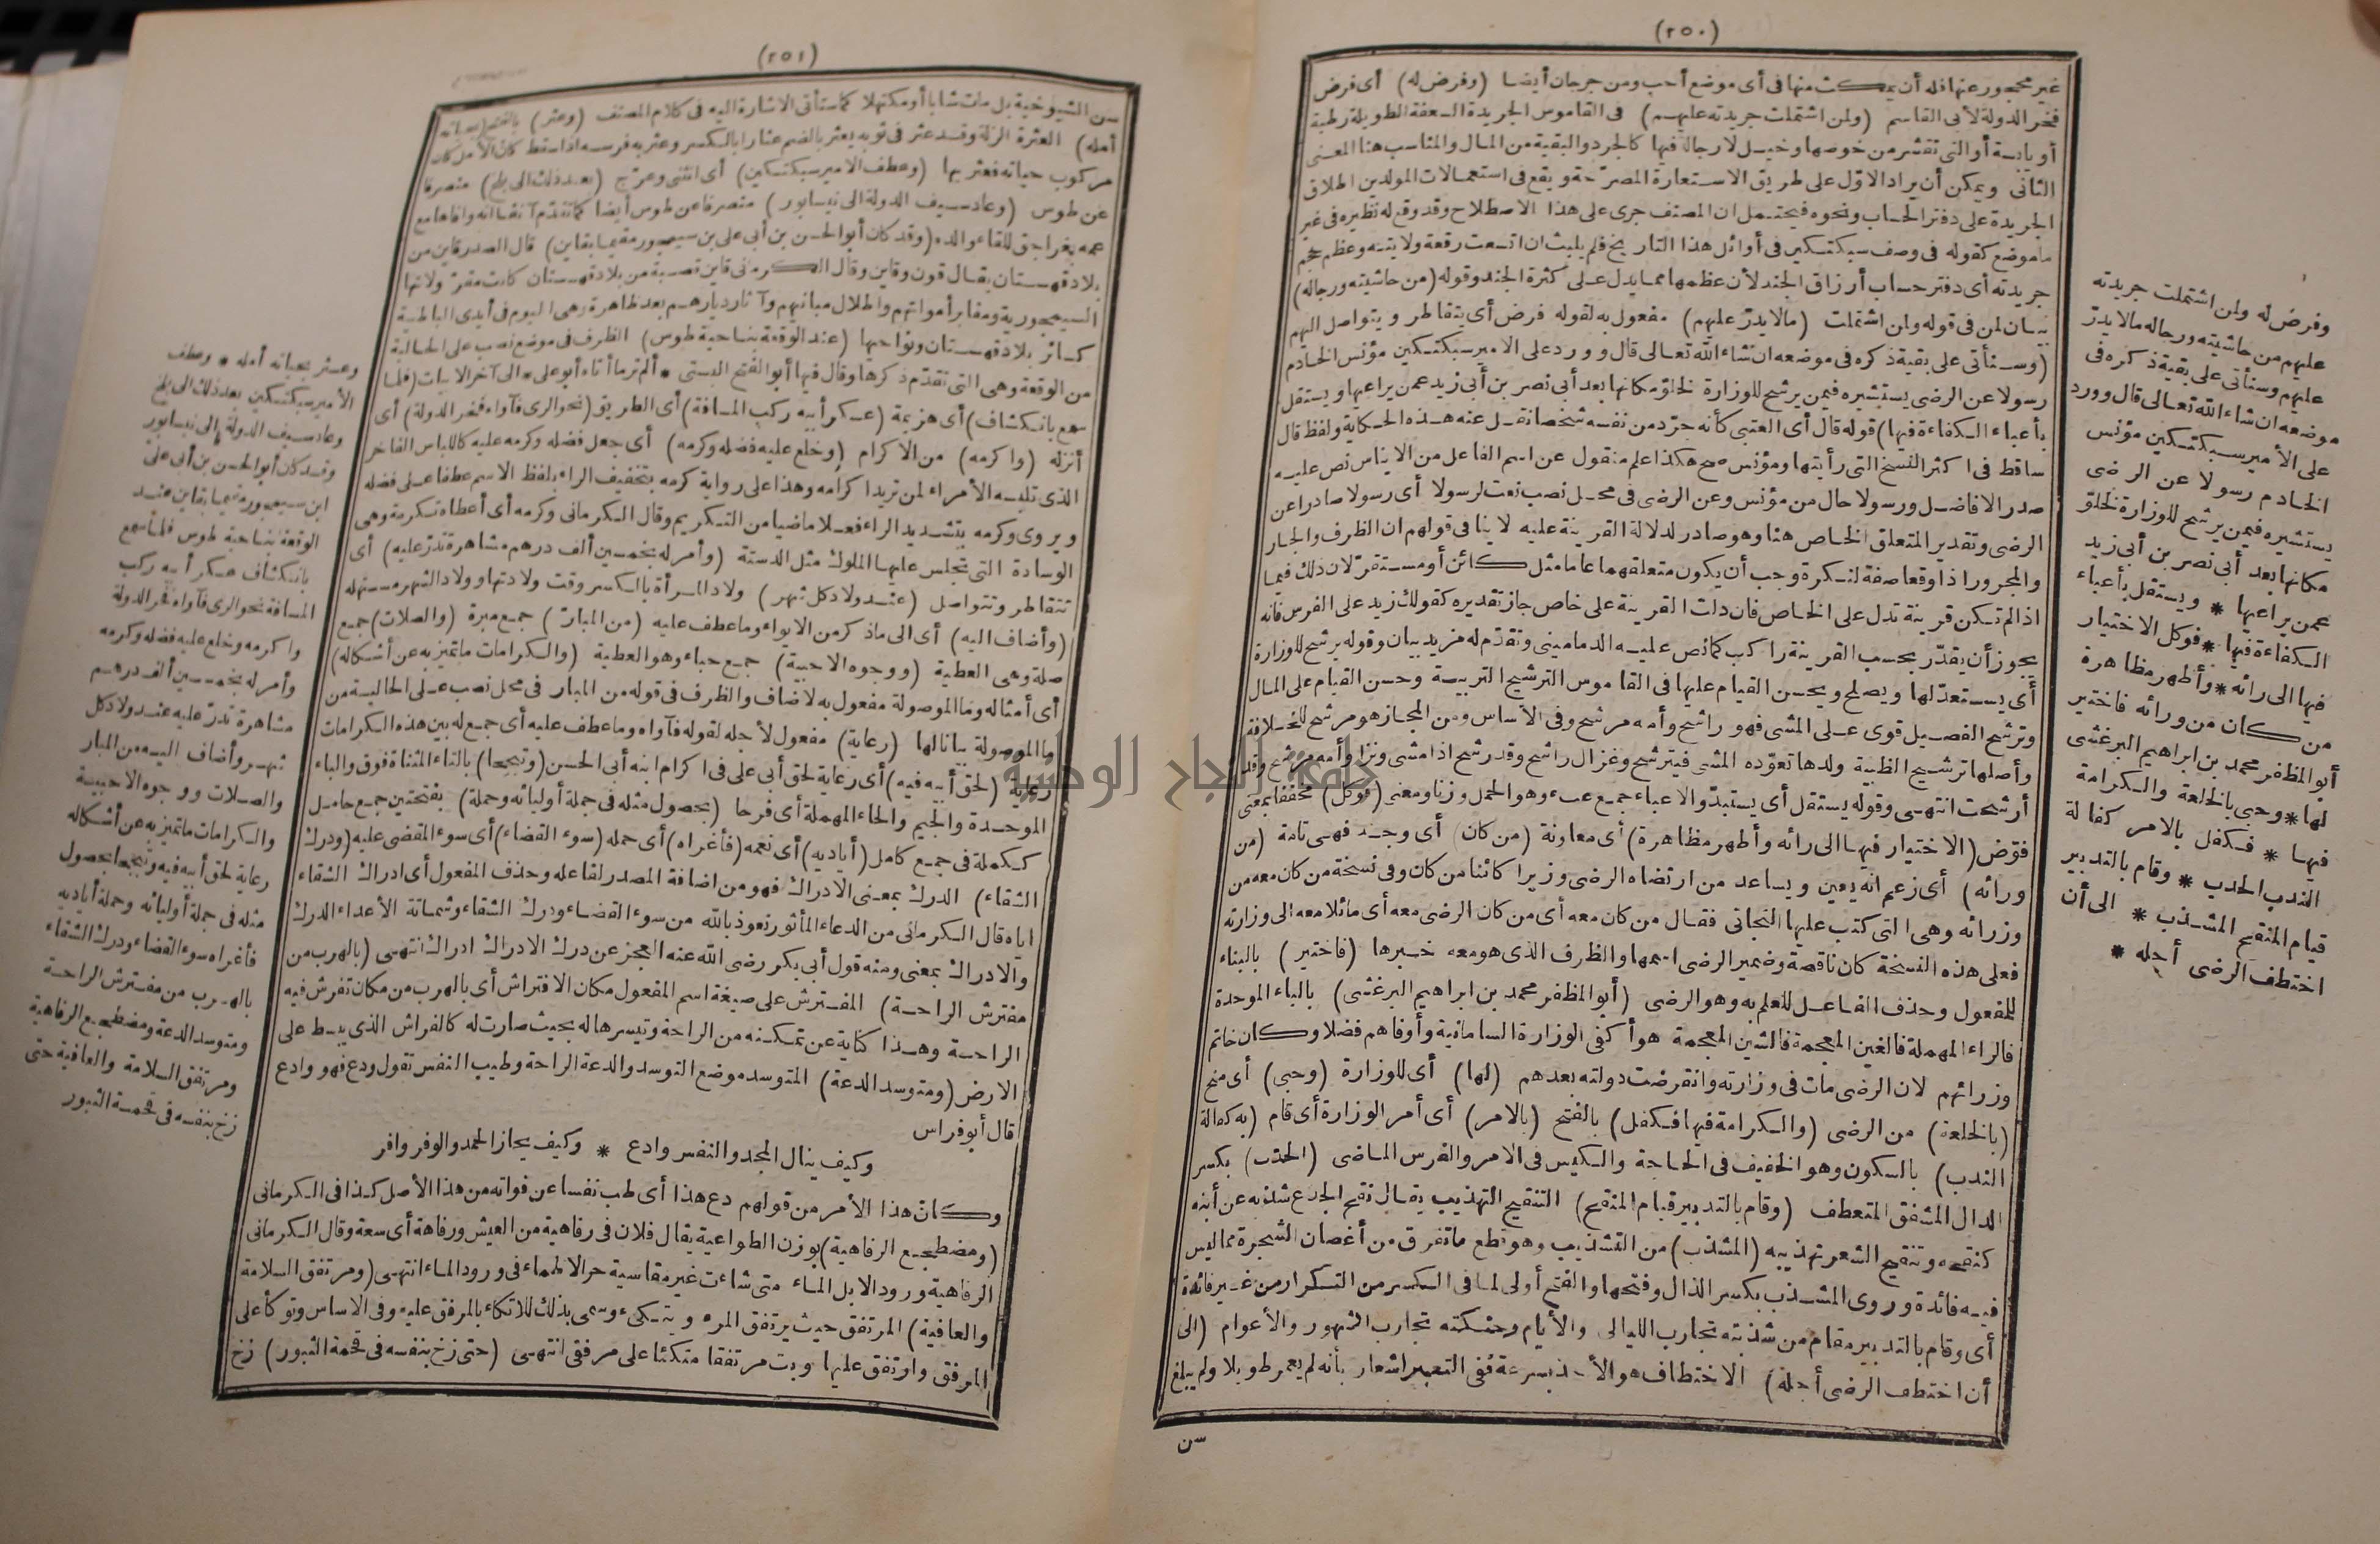 (٢٥٠)
غير محجور عنها فله أن يمكث منها فى أى موضع أحب ومن جرجان أيضا (وفرض له) أى فرض
فخر الدولة لأبى القاسم (ولمن اشتملت جريدته عليهم) فى القاموس الجريدة السعفة الطويلة رطبة
أو يابسة أو التى تقشر من خوصها وخيل لا رجالة فيها كالجرد والبقية من المال والمناسب هنا المعنى
الثانى ويمكن أن يراد الاوّل على طريق الاستعارة المصرّحة ويقع فى استعمالات المولدين اطلاق
الجريدة على دفتر الحساب ونحوه فيحتمل ان المصنف جرى على هذا الاصطلاح وقد وقع له نظيره فى غير
ما موضع كقوله فى وصف سبكتكين فى أوائل هذا التاريخ فلم يلبث ان اتسعت رقعة ولايته وعظم حجم
جريدته أى دفتر حساب أرزاق الجند لأن عظمها مما يدل على كثرة الجند وقوله (من حاشيته ورجاله)
بيان لمن فى قوله ولمن اشتملت (مالا يدرّ عليهم) مفعول به لقوله فرض أى يتقاطر ويتواصل اليهم
(وستأتى على بقية ذكره فى موضعه ان شاء الله تعالى قال وورد على الامير سبكتكين مؤنس الخادم
رسولا عن الرضى يستشيره فيمن يرشح للوزارة لخلوّ مكانها بعد أبى نصر بن أبى زيد عمن يراعيها ويستقل
بأعباء الكفاءة فيها) قوله قال أى العتبى كأنه جرّد من نفسه شخصا نقل عنه هذه الحكاية ولفظ قال
ساقط فى اكثر النسخ التى رأيتها ومؤنس صح هكذا علم منقول عن اسم الفاعل من الايناس نص عليه
صدر الافاضل ورسولا حال من مؤنس وعن الرضى فى محل نصب نعت لرسولا أى رسولا صادرا عن
الرضى وتقدير المتعلق الخاص هنا وهو صادر لدلالة القرينة عليه لا ينافى قولهم ان الظرف والجار
والمجرور اذا وقعا صفة لنكرة وجب أن يكون متعلقهما عاما مثل كائن أو مستقرّ لان ذلك فيما
اذا لم تكن قرينة تدل على الخاص فان دلت القرينة على خاص جاز تقديره كقولك زيد على الفرس فانه
يجوز أن يقدّر بحسب القرينة راكب كما نص عليه الدمامينى وتقدّم له مزيد بيان وقوله يرشح للوزارة
أى يستعدّ لها ويصلح ويحسن القيام عليها فى القاموس الترشيح التربية وحسن القيام على المال
وترشح الفصيل قوى على المشى فهو راشح وأمه مرشح وفى الأساس ومن المجاز هو مرشح للخلافة
وأصلها ترشيح الظبية ولدها تعوّده المشى فيترشح وغزال راشح وقد رشح اذا مشى ونزا وأمه مرشح وقد
أرشحت انتهى وقوله يستقل أى يستبدّ والاعباء جمع عبء وهو الحمل وزنا ومعنى (فوكل) مخففا بمعنى
فوّض (الاختيار فيها الى رائه وأظهر مظاهرة) أى معاونة (من كان) أى وجد فهى تامة (من
ورائه) أى زعم انه يعين ويساعد من ارتضاه الرضى وزيرا كائنا من كان وفى نسخة من كان معه من
وزرائه وهى التى كتب عليها النجاتى فقال من كان معه أى من كان الرضى معه أى مائلا معه الى وزارته
فعلى هذه النسخة كان ناقصة وضمير الرضى اسمها والظرف الذى هو معه خبرها (فاختير) بالبناء
للمفعول وحذف الفاعل للعلم به وهو الرضى (أبو المظفر محمد بن ابراهيم البرغشى) بالباء الموحدة
فالراء المهملة فالغين المعجمة فالشين المعجمة هو أكفى الوزارة السامانية وأوفاهم فضلا وكان خاتم
وزرائهم لان الرضى مات فى وزارته وانقرضت دولته بعدهم (لها) أى للوزارة (وحبى) أى منح
(بالخلعة) من الرضى (والكرامة فيها فكفل) بالفتح (بالامر) أى أمر الوزارة أى قام (به كفالة
الندب) بالسكون وهو الخفيف فى الحاجة والكيس فى الامر والفرس الماضى (الحدب) بكسر
الدال المشفق المتعطف (وقام بالتدبير قيام المنقح) التنقيح التهذيب يقال نقح الجذع شذبه عن أبنه
كنقحه وتنقيح الشعر تهذيبه (المشذب) من التشذيب وهو قطع ما تفرق من أغصان الشجرة مما ليس
فيه فائدة وروى المشذب بكسر الذال وفتحها والفتح أولى لما فى الكسر من التكرار من غير فائدة
أى وقام بالتدبير مقام من شذبته تجارب الليالى والأيام وحنكته تجارب الشهور والأعوام (الى
أن اختطف الرضى أجله) الاختطاف هو الأخذ بسرعة ففى التعبير اشعار بأنه لم يعمر طويلا ولم يبلغ
سن
وفرض له ولمن اشتملت جريدته
عليهم من حاشيته ورجاله مالا يدرّ
عليهم وستأتى على بقية ذكره فى
موضعه ان شاء الله تعالى قال وورد
على الأمير سبكتكين مؤنس
الخادم رسولا عن الرضى
يستشيره فيمن يرشح للوزارة لخلوّ
مكانها بعد أبى نصر بن أبى زيد
عمن يراعيها * ويستقل بأعباء
الكفاءة فيها * فوكل الاختيار
فيها الى رائه * وأظهر مظاهرة
من كان من ورائه فاختير
أبو المظفر محمد بن ابراهيم البرغشى
لها * وحبى بالخلعة والكرامة
فيها * فكفل بالامر كفالة
الندب الحدب * وقام بالتدبير
قيام المنقح المشذب * الى أن
اختطف الرضى أجله *
(٢٥١)
سن الشيوخية بل مات شابا أو مكتهلا كما ستأتى الاشارة اليه فى كلام المصنف (وعثر) بالفتح (بحياته
أمله) العثرة الزلة وقد عثر فى ثوبه يعثر بالضم عثارا بالكسر وعثر به فرسه اذا سقط كان الأمل كان
مركوب حياته فعثر بها (وعطف الامير سبكتكين) أى انثنى وعرّج (بعد ذلك الى بلخ) منصرفا
عن طوس (وعاد سيف الدولة الى نيسابور) منصرفا عن طوس أيضا كما تقدّم آنفا انه وافاها مع
عمه بغراجق للقاء والده (وقد كان أبو الحسن بن أبى على بن سيمجور مقيما بقاين) قال الصدر قاين من
بلاد قهستان يقال قون وقاين وقال الكرمانى قاين قصبة من بلاد قهستان كانت مقرّ ولاتها
السيمجورية ومقابر أمواتهم واطلال مبانيهم وآثار ديارهم بعد ظاهرة وهى اليوم فى أيدى الباطنية
كسائر بلاد قهستان ونواحيها (عند الوقعة بناحية طوس) الظرف فى موضع نصب على الحالية
من الوقعة وهى التى تقدّم ذكرها وقال فيها أبو الفتح البستى * ألم تر ما أتاه أبو على * الى آخر الابيات (فلما
سمع بانكشاف) أى هزيمة (عسكر أبيه ركب المسافة) أى الطريق (نحو الرى فآواه فخر الدولة) أى
أنزله (واكرمه) من الاكرام (وخلع عليه فضله وكرمه) أى جعل فضله وكرمه عليه كاللباس الفاخر
الذى تلبسه الأمراء لمن تريد اكرامه وهذا على رواية كرمه بتخفيف الراء بلفظ الاسم عطفا على فضله
ويروى وكرمه بتشديد الراء فعلا ماضيا من التكريم وقال الكرمانى وكرمه أى أعطاه تكرمة وهى
الوسادة التى تجلس عليها الملوك مثل الدستة (وأمر له بخمسين ألف درهم مشاهرة تدرّ عليه) أى
تتقاطر وتتواصل (عند ولاد كل شهر) ولاد المرأة بالكسر وقت ولادتها وولاد الشهر مستهله
(وأضاف اليه) أى الى ما ذكر من الايواء وما عطف عليه (من المبارّ) جمع مبرة (والصلات) جمع
صلة وهى العطية (ووجوه الاحبية) جمع حباء وهو العطية (والكرامات ما تميز به عن أشكاله)
أى أمثاله وما الموصولة مفعول به لأضاف والظرف فى قوله من المبار فى محل نصب على الحالية من
ما الموصولة بيانا لها (رعاية) مفعول لأجله لقوله فآواه وما عطف عليه أى جمع له بين هذه الكرامات
رعاية (لحق أبيه فيه) أى رعاية لحق أبى على فى اكرام ابنه أبى الحسن (وتبجحا) بالتاء المثناة فوق والباء
الموحدة والجيم والحاء المهملة أى فرحا (بحصول مثله فى جملة أوليائه وحملة) بفتحتين جمع حامل
ككملة فى جمع كامل (أياديه) أى نعمه (فأغراه) أى حمله (سوء القضاء) أى سوء المقضى عليه (ودرك
الشقاء) الدرك بمعنى الادراك فهو من اضافة المصدر لفاعله وحذف المفعول أى ادراك الشقاء
اياه قال الكرمانى من الدعاء المأثور نعوذ بالله من سوء القضاء ودرك الشقاء وشماتة الأعداء الدرك
والادراك بمعنى ومنه قول أبى بكر رضى الله عنه العجز عن درك الادراك ادراك انتهى (بالهرب من
مفترش الراحة) المفترش على صيغة اسم المفعول مكان الافتراش أى بالهرب من مكان تفرش فيه
الراحة وهذا كناية عن تمكنه من الراحة وتيسرها له بحيث صارت له كالفراش الذى يبسط على
الارض (ومتوسد الدعة) المتوسد موضع التوسد والدعة الراحة وطيب النفس تقول ودع فهو وادع
قال أبو فراس
وكيف ينال المجد والنفس وادع * وكيف يحاز الحمد والوفر وافر
وكانّ هذا الأمر من قولهم دع هذا أى طب نفسا عن فواته من هذا الأصل كذا فى الكرمانى
(ومضطجع الرفاهية) بوزن الطواعية يقال فلان فى رفاهية من العيش ورفاهة أى سعة وقال الكرمانى
الرفاهية ورود الابل الماء متى شاءت غير مقاسية حر الاظماء فى ورود الماء انتهى (ومرتفق السلامة
والعافية) المرتفق حيث يرتفق المرء ويتكىء وسمى بذلك للاتكاء بالمرفق عليه وفى الاساس وتوكأ على
المرفق وارتفق عليها وبت مرتفقا متكئا على مرفقى انتهى (حتى زخ بنفسه فى قحمة الثبور) زخ
وعثر بحياته أمله * وعطف
الأمير سبكتكين بعد ذلك الى بلخ
وعاد سيف الدولة الى نيسابور
وقد كان أبو الحسن بن أبى على
ابن سيمجور مقيما بقاين عند
الوقعة بناحية طوس فلما سمع
بانكشاف عسكر أبيه ركب
المسافة نحو الرى فآواه فخر الدولة
واكرمه وخلع عليه فضله وكرمه
وأمر له بخمسين ألف درهم
مشاهرة تدرّ عليه عند ولاد كل
شهر وأضاف اليه من المبار
والصلات ووجوه الاحبية
والكرامات ما تميز به عن أشكاله
رعاية لحق أبيه فيه وتبجحا بحصول
مثله فى جملة أوليائه وحملة أياديه
فأغراه سوء القضاء ودرك الشقاء
بالهرب من مفترش الراحة
ومتوسد الدعة ومضطجع الرفاهية
ومرتفق السلامة والعافية حتى
زخ بنفسه فى قحمة الثبور
جامعة النجاح الوطنية